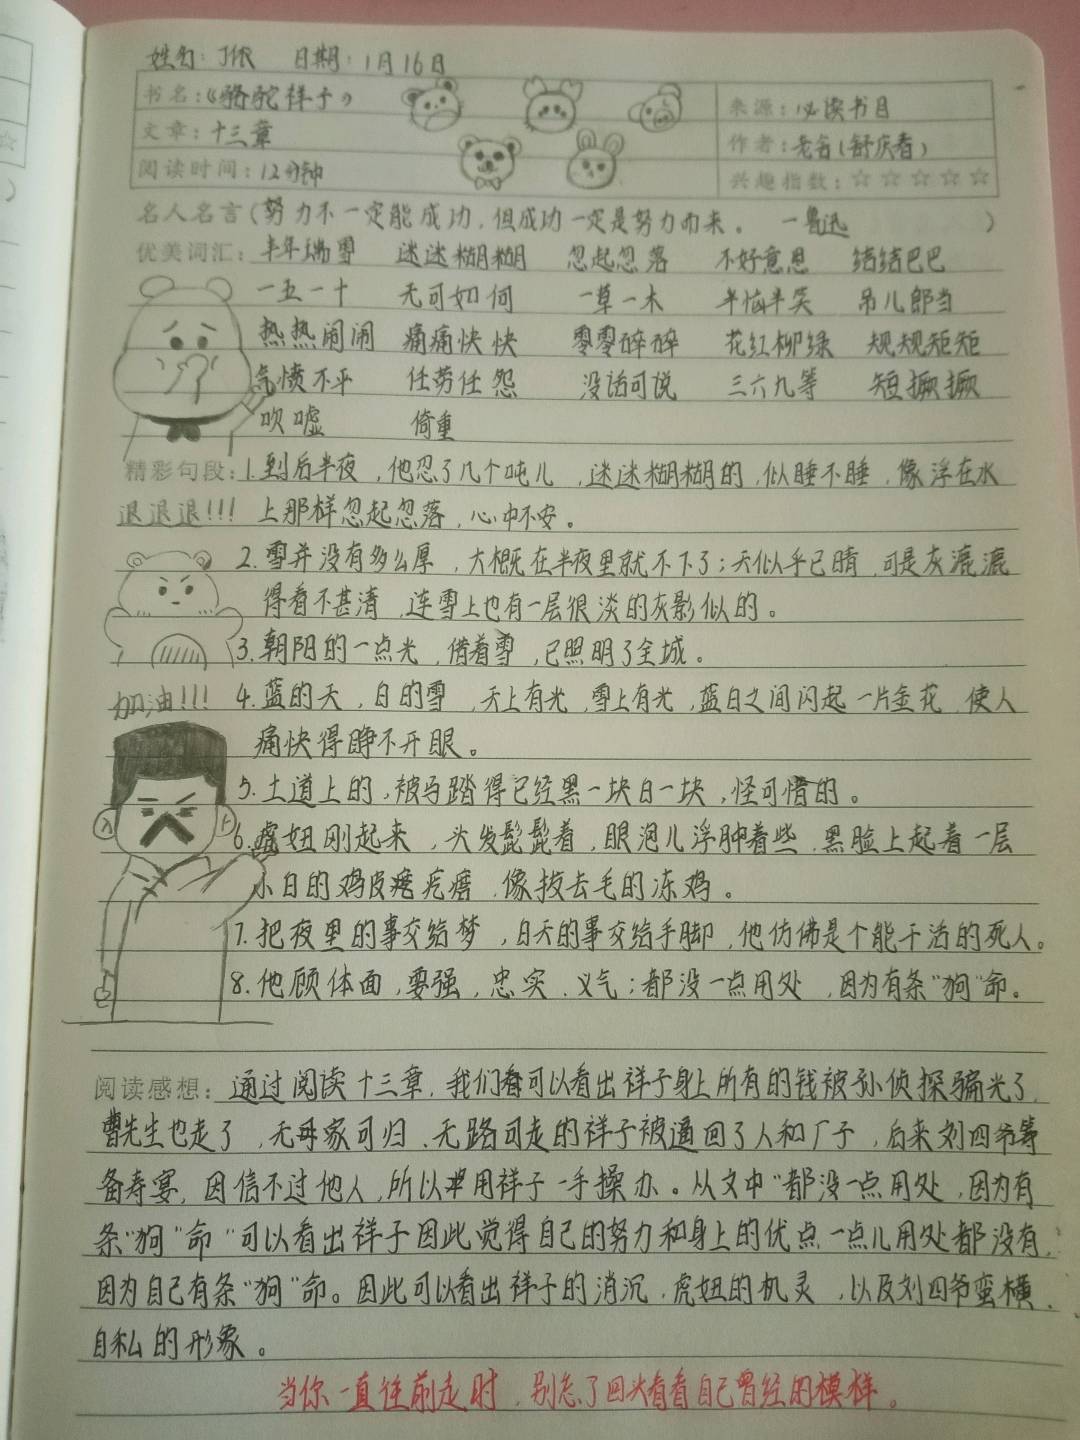 姓名：JYR 日期：1月16日
书名：《骆驼祥子》 来源：必读书目
文章：十三章 作者：老舍（舒庆春）
阅读时间：12分钟 兴趣指数：☆☆☆☆☆
名人名言（努力不一定能成功，但成功一定是努力而来。 —鲁迅 ）
优美词汇：半年瑞雪 迷迷糊糊 忽起忽落 不好意思 结结巴巴
一五一十 无可如何 一草一木 半恼半笑 吊儿郎当
热热闹闹 痛痛快快 零零碎碎 花红柳绿 规规矩矩
气愤不平 任劳任怨 没话可说 三六九等 短撅撅
吹嘘 倚重
精彩句段：1.到后半夜，他忍了几个盹儿，迷迷糊糊的，似睡不睡，像浮在水
退退退!!! 上那样忽起忽落，心中不安。
2.雪并没有多么厚，大概在半夜里就不下了；天似乎已晴，可是灰漉漉
得看不甚清，连雪上也有一层很淡的灰影似的。
3.朝阳的一点光，借着雪，已照明了全城。
加油!!! 4.蓝的天，白的雪，天上有光，雪上有光，蓝白之间闪起一片金花，使人
痛快得睁不开眼。
5.土道上的，被马踏得已经黑一块白一块，怪可惜的。
6.虎妞刚起来，头发髭髭着，眼泡儿浮肿着些，黑脸上起着一层
小白的鸡皮疙瘩，像拔去毛的冻鸡。
7.把夜里的事交给梦，白天的事交给手脚，他仿佛是个能干活的死人。
8.他顾体面，要强，忠实，义气；都没一点用处，因为有条“狗”命。
阅读感想：通过阅读十三章，我们可以看出祥子身上所有的钱被孙侦探骗光了，
曹先生也走了，无家可归、无路可走的祥子被逼回了人和厂子，后来刘四爷筹
备寿宴，因信不过他人，所以用祥子一手操办。从文中“都没一点用处，因为有
条“狗”命”可以看出祥子因此觉得自己的努力和身上的优点一点儿用处都没有，
因为自己有条“狗”命。因此可以看出祥子的消沉，虎妞的机灵，以及刘四爷蛮横、
自私的形象。
当你一直往前走时，别忘了回头看看自己曾经的模样。